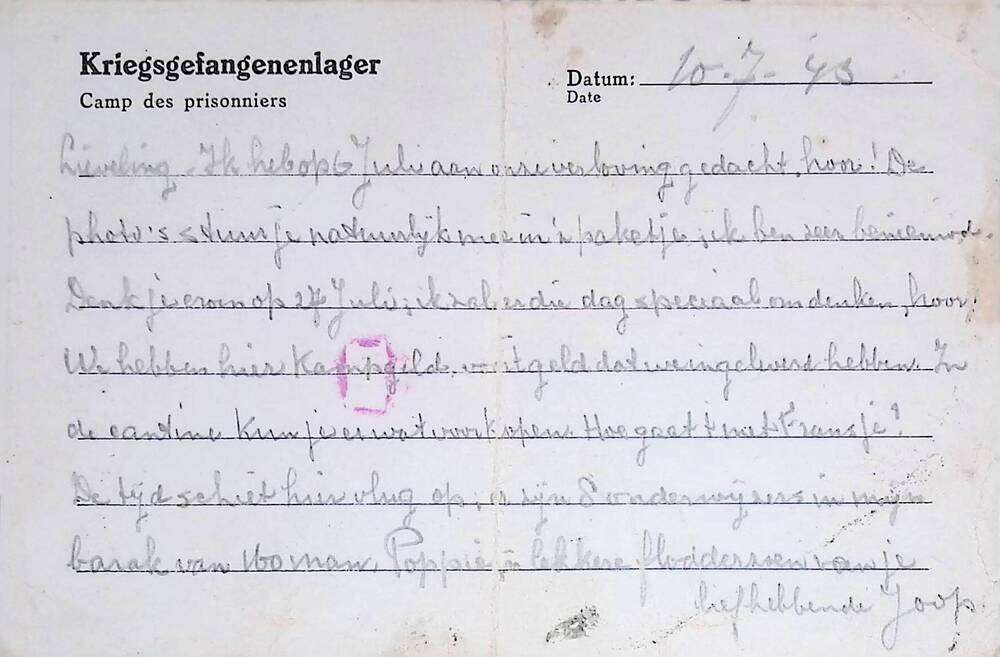 Kriegsgefangenenlager
Camp des prisonniers
Datum: 10-7-'43
Date
Lieveling. Ik heb op 6 Juli aan onze verloving gedacht, hoor! De
photo's stuur je natuurlijk mee in 'n paketje; ik ben zeer benieuwd.
Denk je erom op 27 Juli; ik zal er die dag speciaal om denken, hoor!
We hebben hier Kampgeld, voor 't geld dat we ingeleverd hebben. In
de cantine kun je er wat voor kopen. Hoe gaat 't met Fransje?
De tijd schiet hier vlug op; er zijn 8 onderwijzers in mijn
barak van 160 man. Poppie, 'n lekkere flodderzoen van je
liefhebbende Joop.